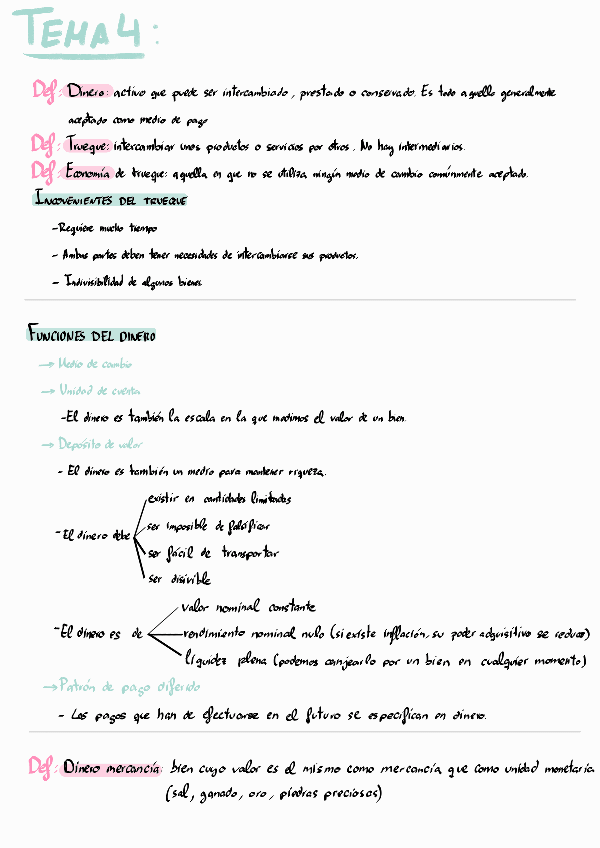 TEMA 4:
Def: Dinero: activo que puede ser intercambiado, prestado o conservado. Es todo aquello generalmente
aceptado como medio de pago
Def: Trueque: intercambiar unos productos o servicios por otros. No hay intermediarios.
Def: Economía de trueque: aquella en que no se utiliza ningún medio de cambio comúnmente aceptado.
INCOVENIENTES DEL TRUEQUE
-Requiere mucho tiempo
- Ambas partes deben tener necesidades de intercambiarse sus productos.
- Indivisibilidad de algunos bienes
FUNCIONES DEL DINERO
→ Medio de cambio
→ Unidad de cuenta
-El dinero es también la escala en la que medimos el valor de un bien.
→ Depósito de valor
- El dinero es también un medio para mantener riqueza.
existir en cantidades limitadas
ser imposible de falsificar
- El dinero debe
ser fácil de transportar
ser divisible
valor nominal constante
-El dinero es de
rendimiento nominal nulo (si existe inflación, su poder adquisitivo se reduce)
liquidez plena (podemos canjearlo por un bien en cualquier momento)
→ Patrón de pago diferido
- Los pagos que han de efectuarse en el futuro se especifican en dinero.
Def: Dinero mercancía: bien cuyo valor es el mismo como mercancía que como unidad monetaria
(sal, ganado, oro, piedras preciosas)